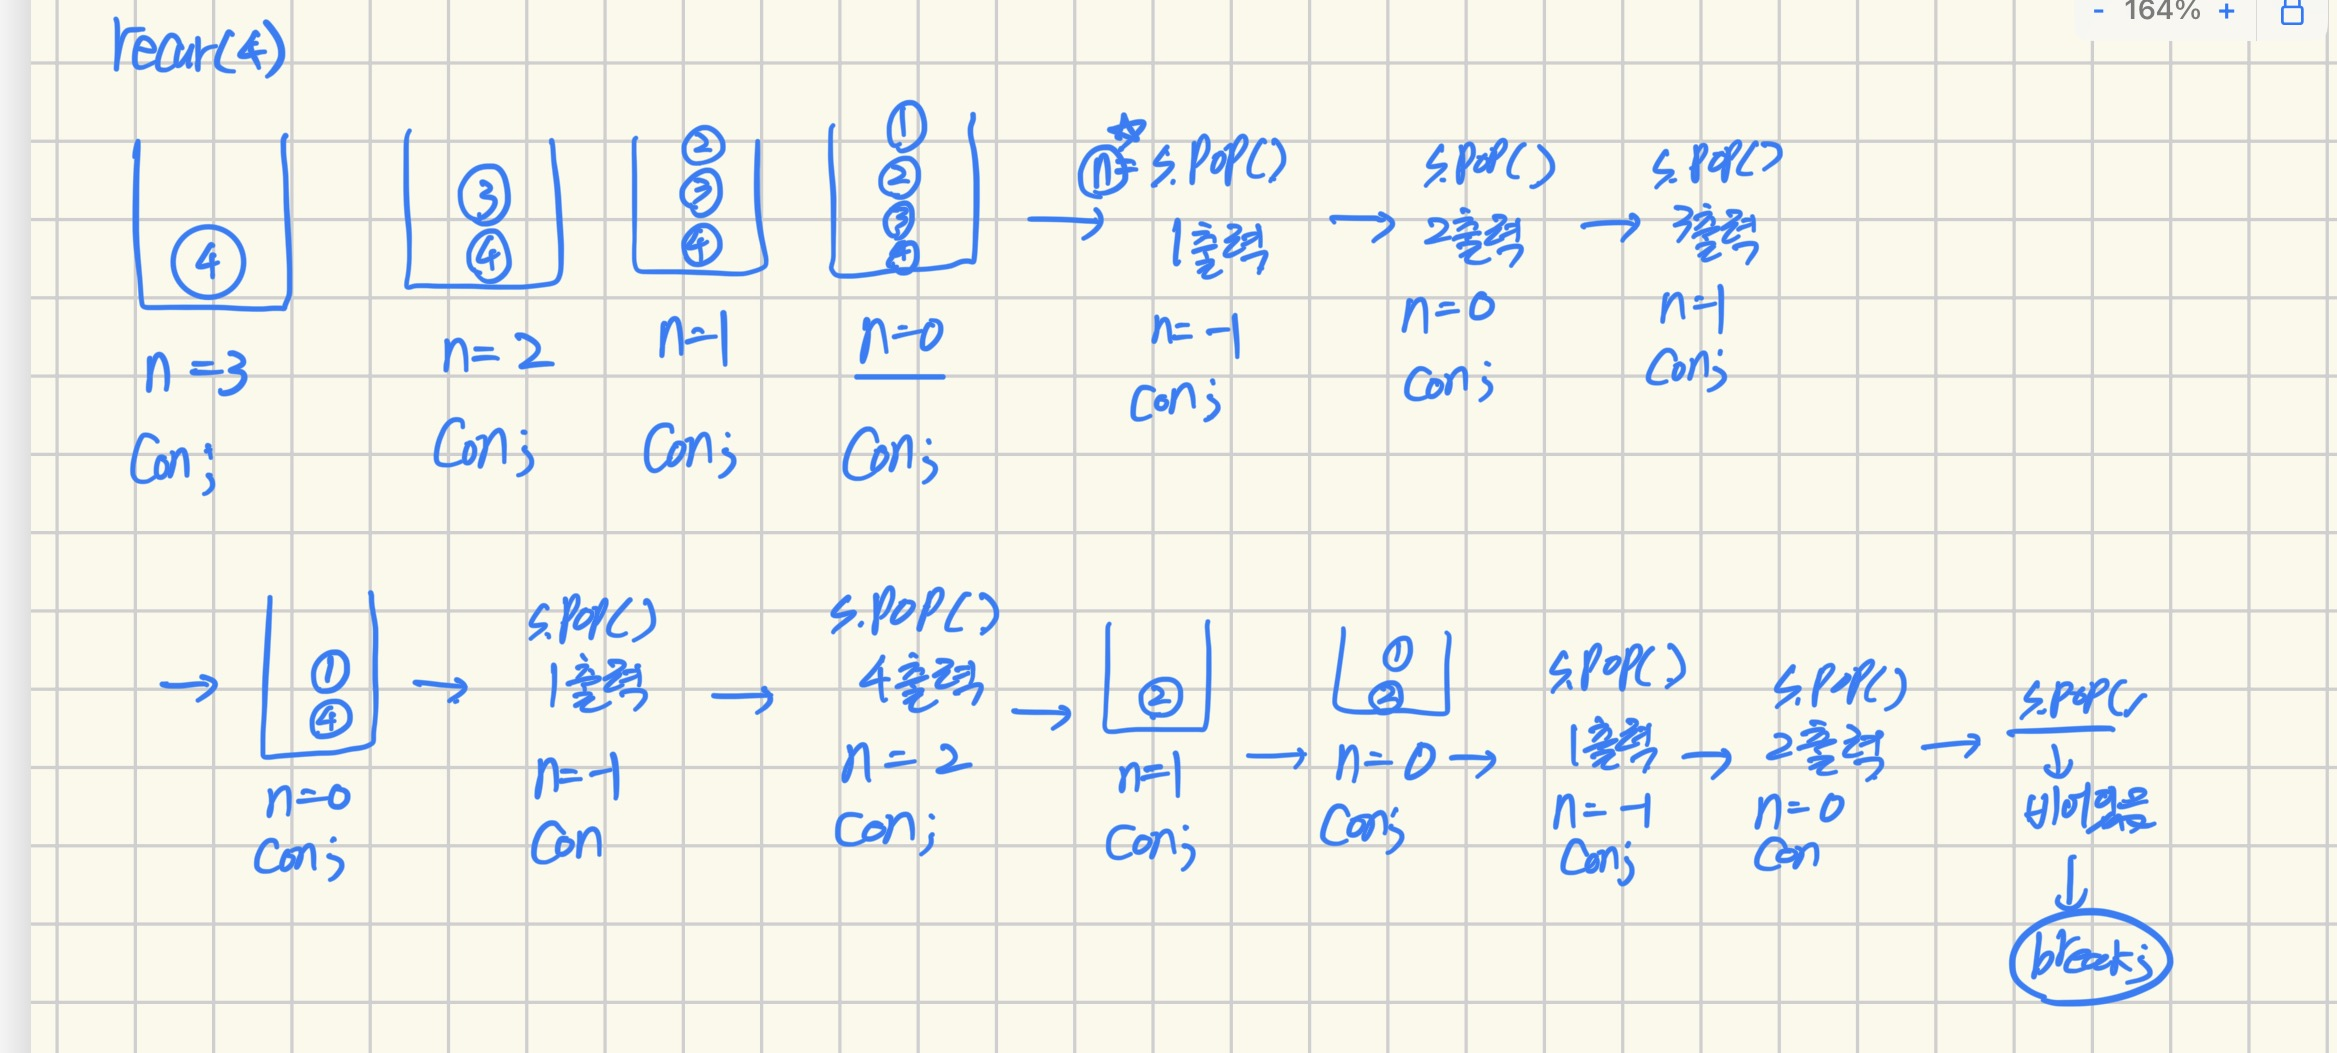 - 164% +
recur(4)
4
n=3
Con;
3
4
n=2
Con;
2
3
4
n=1
Con;
1
2
3
4
n=0
Con;
n= s.pop()
1출력
n=-1
Con;
s.pop()
2출력
n=0
Con;
s.pop()
3출력
n=1
Con;
1
4
n=0
Con;
s.pop()
1출력
n=-1
Con
s.pop()
4출력
n=2
Con;
2
n=1
Con;
1
2
n=0
Con;
s.pop()
1출력
n=-1
Con;
s.pop()
2출력
n=0
Con
s.pop(
비어있음
break;